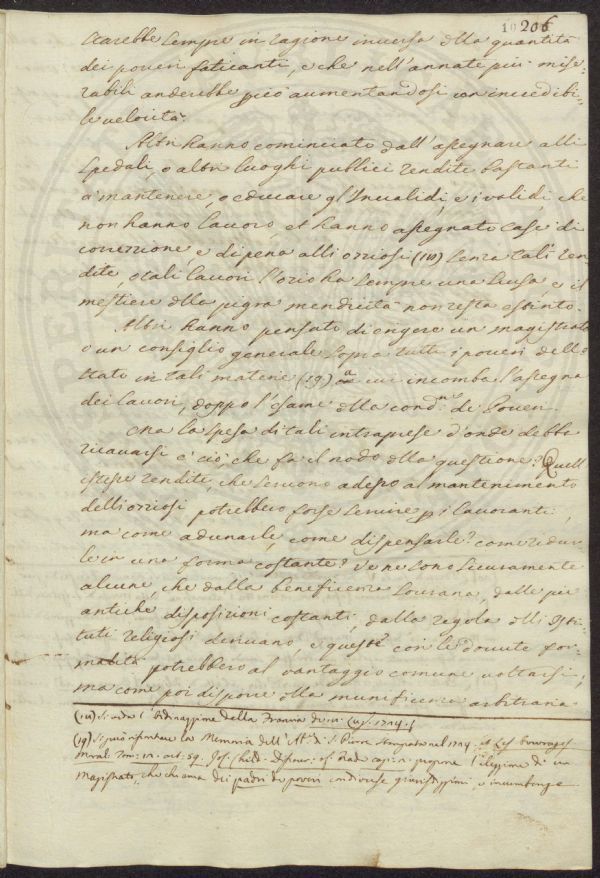 10 206
starebbe sempre in ragione inversa dlla quantità
dei poveri faticanti, e che nell'annate più mise-
rabili anderebbe più aumentandosi con incredibi-
le velocità.
Altri hanno cominciato dall'assegnare alli
spedali, o altri luoghi publici rendite bastanti
a mantenere, o educare gl'Invalidi, e i validi che
non hanno lavoro et hanno assegnato case di
correzione, e di pena alli oziosi (18) senza tali ren
dite, o tali lavori l'ozio ha sempre una scusa e il
mestiere dlla pigra mendicità non resta estinto.
Altri hanno pensato di erigere un magistrato
o un consiglio generale sopra tutti i poveri dello
stato in tali materie (19) a cui incomba l'assegna
dei lavori, doppo l'esame dlla cond.ne de Poveri.
Ma la spesa di tali intraprese d'onde debba
ricavarsi è ciò, che fa il nodo dlla questione? Quell'
stesse rendite, che servono adesso al mantenimento
delli oziosi potrebbero forse servire p i lavoranti;
ma come adunarle, come dispensarle? come ridur
le in una forma costante? Ve ne sono sicuramente
alcune, che dalla beneficenza Sovrana, dalle più
antiche disposizioni costanti, dalla regola dlli Isti-
tuti religiosi derivano, e queste con le dovute for-
malità potrebbero al vantaggio comune voltarsi;
ma come poi disporre dlla munificenza arbitraria
(18) Si veda l'Ordinazione della Francia
(19) Si può riscontrare la Memoria dell'Ab. di S. Pierre stampata nel 1724. et Ses Ouvrages
Moral. Tom. art. 59. Jos. Child. Discour. of Trade cap. 2. propone l'elezzione di un
Magistrato, che chiama dei padri de poveri